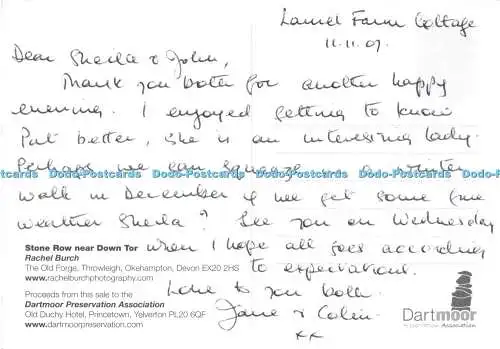 Laurel Farm Cottage
11.11.07.
Dear Sheila & John,
Thank you both for another happy
evening. I enjoyed getting to know
Pat better, she is an interesting lady.
Perhaps we can squeeze in a winter
Dodo-Postcards Dodo-Postcards Dodo-Postcards Dodo-Postcards Dodo-Postcards Dodo-Postcards
walk in December if we get some fine
weather Sheila? See you on Wednesday
when I hope all goes according
to expectations.
Love to you both.
Jane & Colin.
xx
Stone Row near Down Tor
Rachel Burch
The Old Forge, Throwleigh, Okehampton, Devon EX20 2HS
www.rachelburchphotography.com
Proceeds from this sale to the
Dartmoor Preservation Association
Old Duchy Hotel, Princetown, Yelverton PL20 6QF
www.dartmoorpreservation.com
Dartmoor
Preservation Association